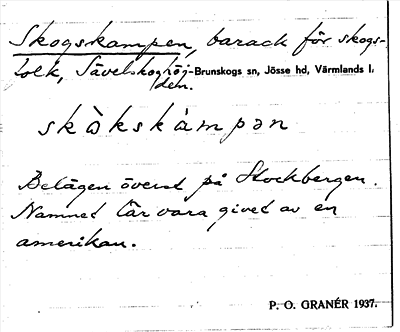 Skogskampen, barack för skogs-
folk, Sävelskogshöj-Brunskogs sn, Jösse hd, Värmlands l.
den.
skàkskàmpən
Belägen överst på Stockbergen.
Namnet lär vara givet av en
amerikan.
P. O. GRANÉR 1937.